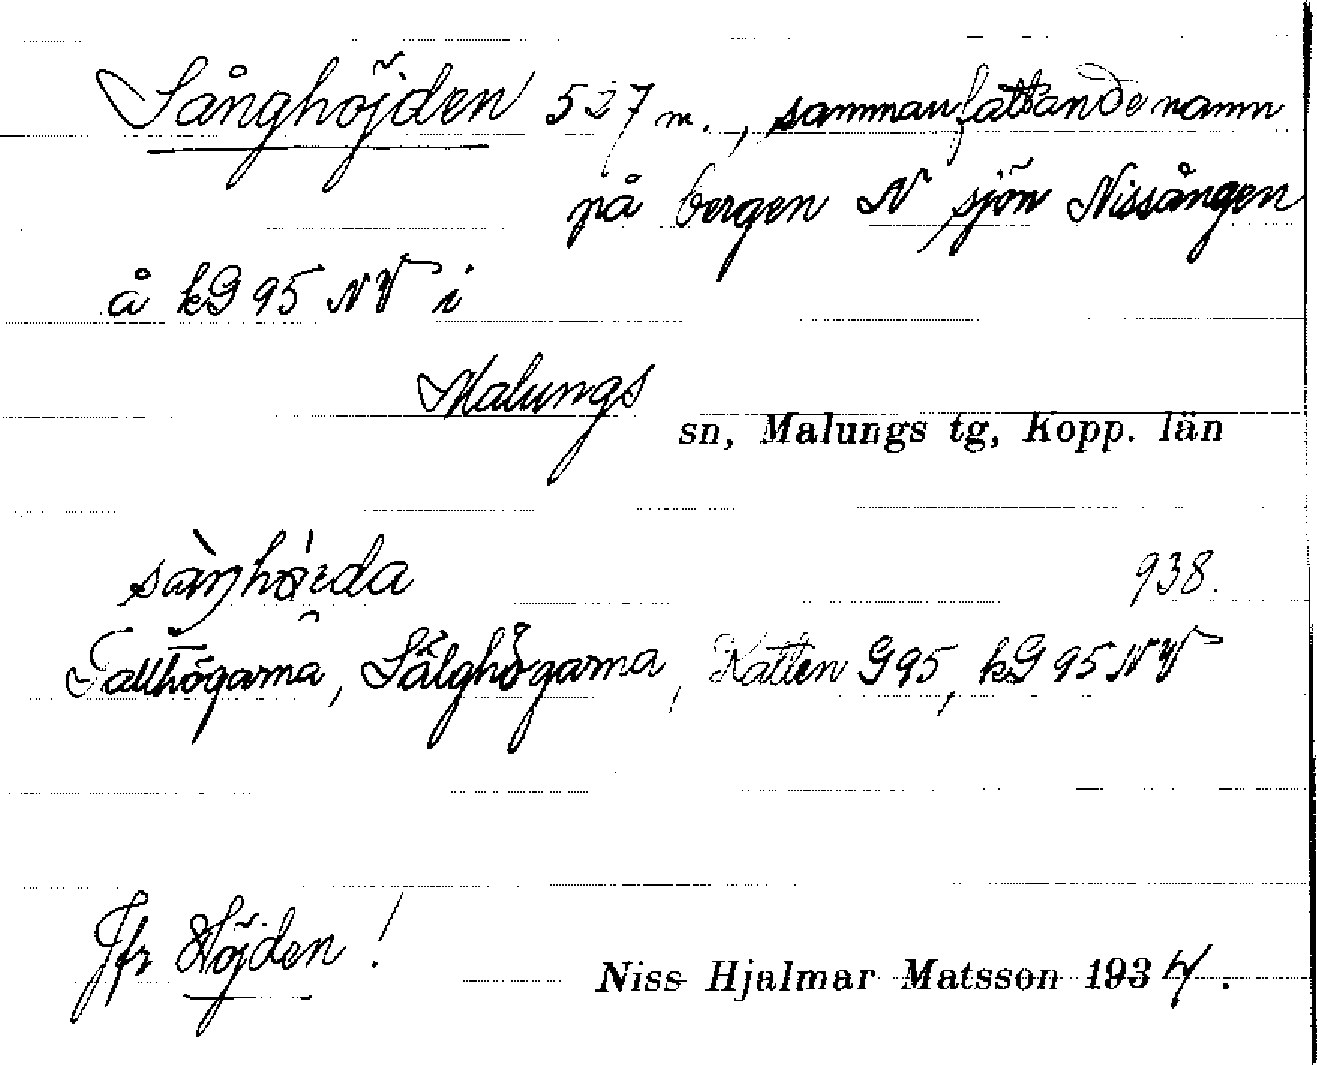 Sånghöjden 527 m., sammanfattande namn
på bergen N sjön Nissången
å kG 95 NV i
Malungs sn, Malungs tg, Kopp. län
938.
Tallhögarna, Sälghögarna, Katten G 95, kG 95 NV
Jfr Höjden!
Niss Hjalmar Matsson 1934.